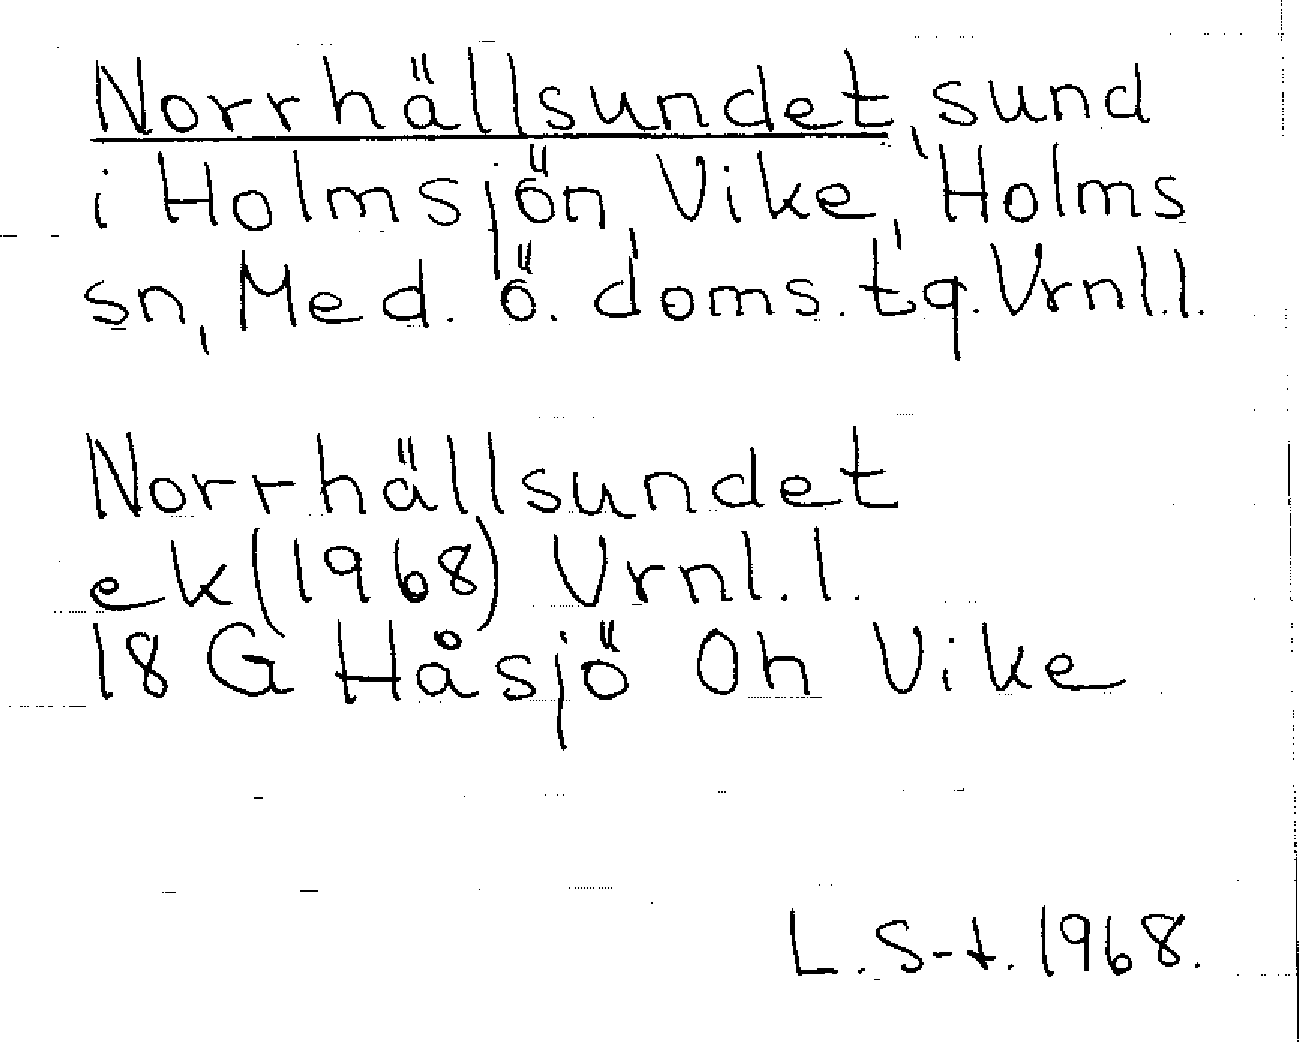 Norrhällsundet, sund
i Holmsjön, Vike, Holms
sn, Med. ö. doms. tg. Vrnl.l.
Norrhällsundet
ek(1968) Vrnl.l.
18 G Håsjö Oh Vike
L.S-t. 1968.